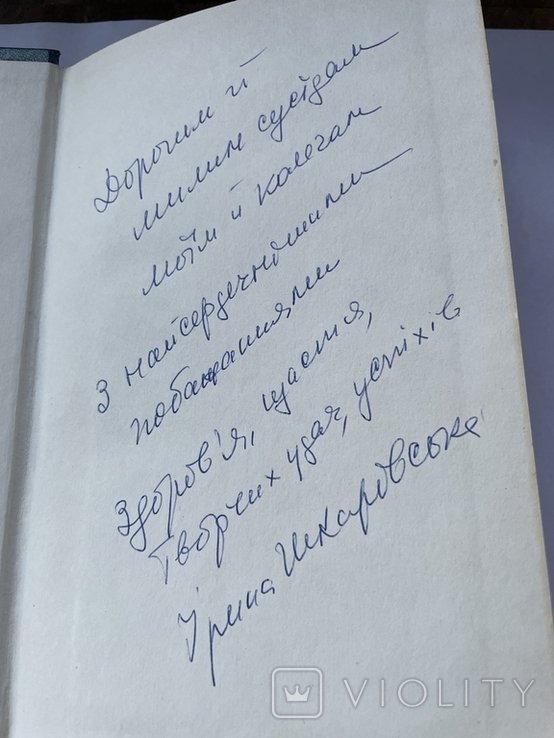 Дорогим й
милим сусідам
моїм й колегам
З найсердечнішими
побажаннями
Здоров'я, щастя,
Творчих удач, успіхів
Ірина Шкаровська
VIOLITY